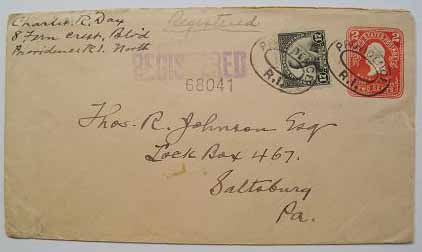 Charles R. Day Registered
8 Fern Crest, Bolv'd
Providence R.I. North
REGISTERED
68041
R.I.
TWO CENTS
Thos. R. Johnson Esq
Lock Box 467.
Saltsburg
Pa.